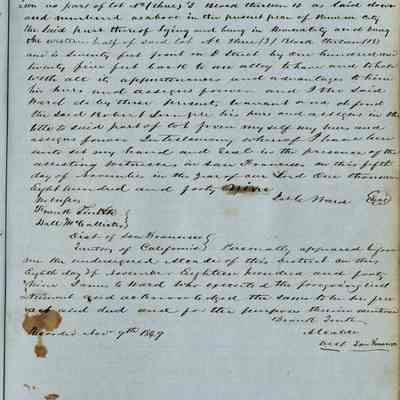 own no part of lot No (three) 3 Block thirteen as is laid down
and numbered as above in the present plan of Benicia city
the said part thereof lying and being in Humanity and being
the western half of said Lot No three (3) Block thirteen (13)
and is Seventy five front on I Street by one hundred and
twenty five feet back to an alley to have and to hold
with all its appurtenances and advantages to him
his heirs and assigns forever and I the said
Ward do by these presents warrant and defend
the said Robert Semple his heirs and assigns in the
title to said part of lot from myself my heirs and
assigns forever In testimony whereof I have here
unto set my hand and Seal in the presence of the
attesting witnesses in San Francisco on this fifth
day of November in the year of our Lord One thousand
Eight hundred and forty Nine
Witnesses
Ward Seal
Frank Turk
Hall McCallister
Dist of San Francisco
Territory of California Personally appeared before
me the undersigned Alcade of this District on this
Eighth day of November Eighteen hundred and forty
Nine James Ward who executed the foregoing inst
rument and acknowledged the same to be his free
act and deed and for the purpose therein mention
Frank Turk
Recorded Nov 9th 1849
Alcalde
Dist San Francisco